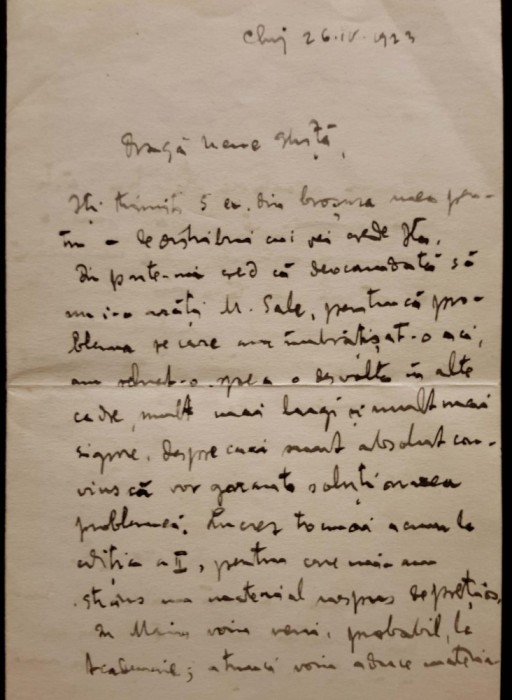 Cluj 26.IV.1923
Dragă nene Ghiță,
Iți trimit 5 ex. din broșura mea pen-
tru a le distribui cui vei crede Dta.
Din parte-mi cred că deocamdată să
nu i-o arăți M. Sale, pentrucă pro-
blema pe care am îmbrățișat-o aci,
am reluat-o spre a o desvolta în alte
cadre, mult mai largi și mult mai
sigure, despre cari sunt absolut con-
vins că vor garanta soluționarea
problemei. Lucrez tocmai acum la
ediția a II, pentru care mi-am
strâns un material nespus de prețios.
In Maiu voiu veni, probabil, la
Academie; atunci voiu aduce materia